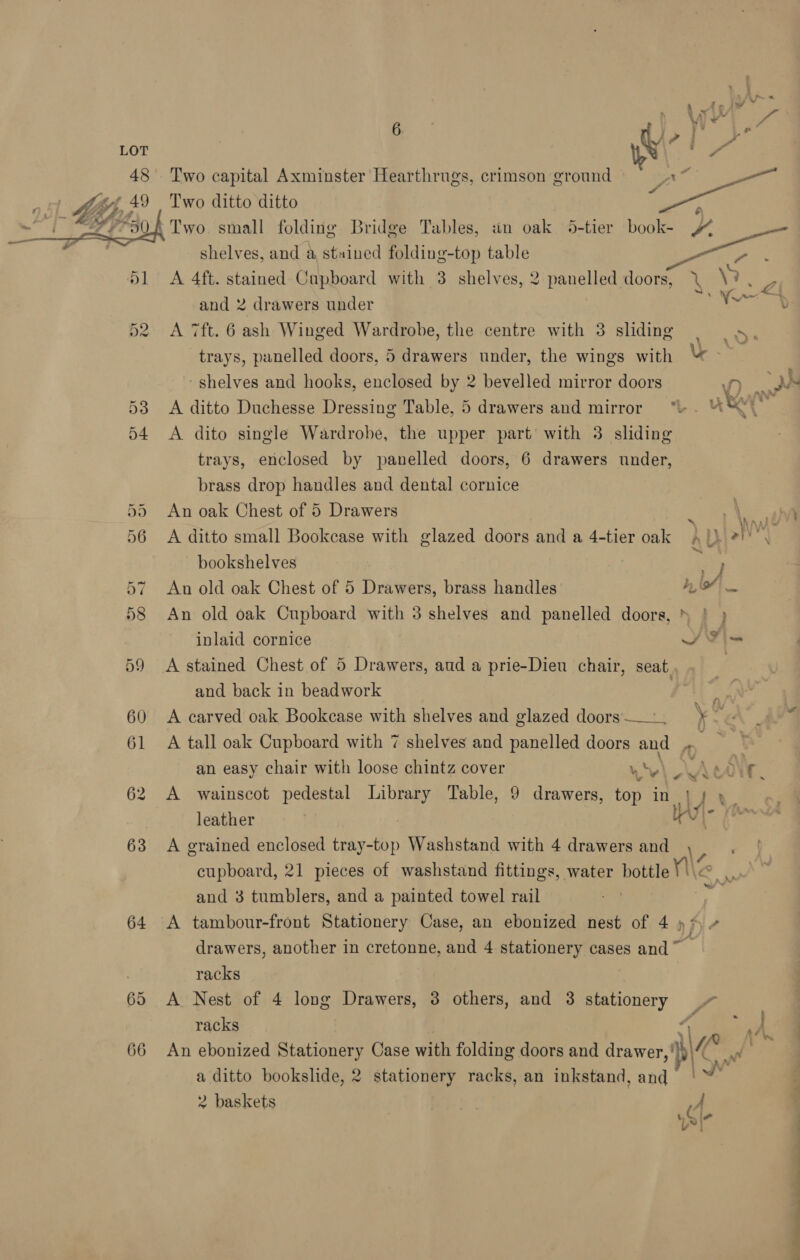 6
LOT
48 Two capital Axminster Hearthrugs, crimson ground
49 Two ditto ditto
50 Two small folding Bridge Tables, an oak 5-tier book-
shelves, and a stained folding-top table
51 A 4ft. stained Cupboard with 3 shelves, 2 panelled doors,
and 2 drawers under
52 A 7ft. 6 ash Winged Wardrobe, the centre with 3 sliding
trays, panelled doors, 5 drawers under, the wings with
shelves and hooks, enclosed by 2 bevelled mirror doors
53 A ditto Duchesse Dressing Table, 5 drawers and mirror
54 A dito single Wardrobe, the upper part with 3 sliding
trays, enclosed by panelled doors, 6 drawers under,
brass drop handles and dental cornice
55 An oak Chest of 5 Drawers
56 A ditto small Bookcase with glazed doors and a 4-tier oak
bookshelves
57 An old oak Chest of 5 Drawers, brass handles
58 An old oak Cupboard with 3 shelves and panelled doors,
inlaid cornice
59 A stained Chest of 5 Drawers, and a prie-Dieu chair, seat
and back in beadwork
60 A carved oak Bookcase with shelves and glazed doors
61 A tall oak Cupboard with 7 shelves and panelled doors and
an easy chair with loose chintz cover
62 A wainscot pedestal Library Table, 9 drawers, top in
leather
63 A grained enclosed tray-top Washstand with 4 drawers and
cupboard, 21 pieces of washstand fittings, water bottle
and 3 tumblers, and a painted towel rail
64 A tambour-front Stationery Case, an ebonized nest of 4
drawers, another in cretonne, and 4 stationery cases and
racks
65 A Nest of 4 long Drawers, 3 others, and 3 stationery
racks
66 An ebonized Stationery Case with folding doors and drawer,
a ditto bookslide, 2 stationery racks, an inkstand, and
2 baskets